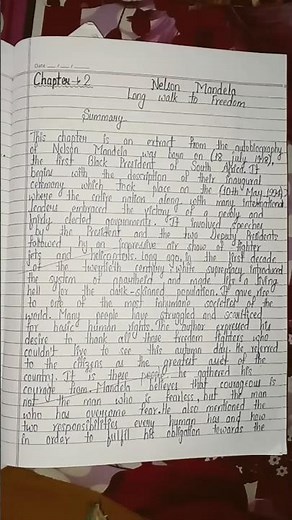 Date
Chapter-2
Nelson Mandela
Long walk to Freedom
Summary
This chapter is an extract from the autobiography
of Nelson Mandela was born on (18 july 1918),
the first Black President of South Africa. It
begin with the description of their inaugural
ceremony which took place on the (10th May, 1994),
where the entire nation along with many international
leaders embraced the victory of a newly and
fairly elected government. It involved speeches
by the President and the two Deputy Presidents
followed by an impressive air show of fighter
jets and helicopters. long ago, In the first decade
of the twentieth century, white supremacy introduced
the system of apartheid and made life a living
hell for the dark-skinned population. It gave rise
to one of the most inhumane societies of the
world. Many people have struggled and sacrificed
for basic human rights. The author expressed his
desire to thank all those freedom fighters who
couldn't live to see this autumn day. He referred
to the citizens as the greatest asset of the
country. It is these people gathered his
courage from. Mandela believes that courageous is
not the man who is fearless, but the man
who has overcome fear. He also mentioned the
two responsibilities every human has and how
in order to fulfill his obligation towards the